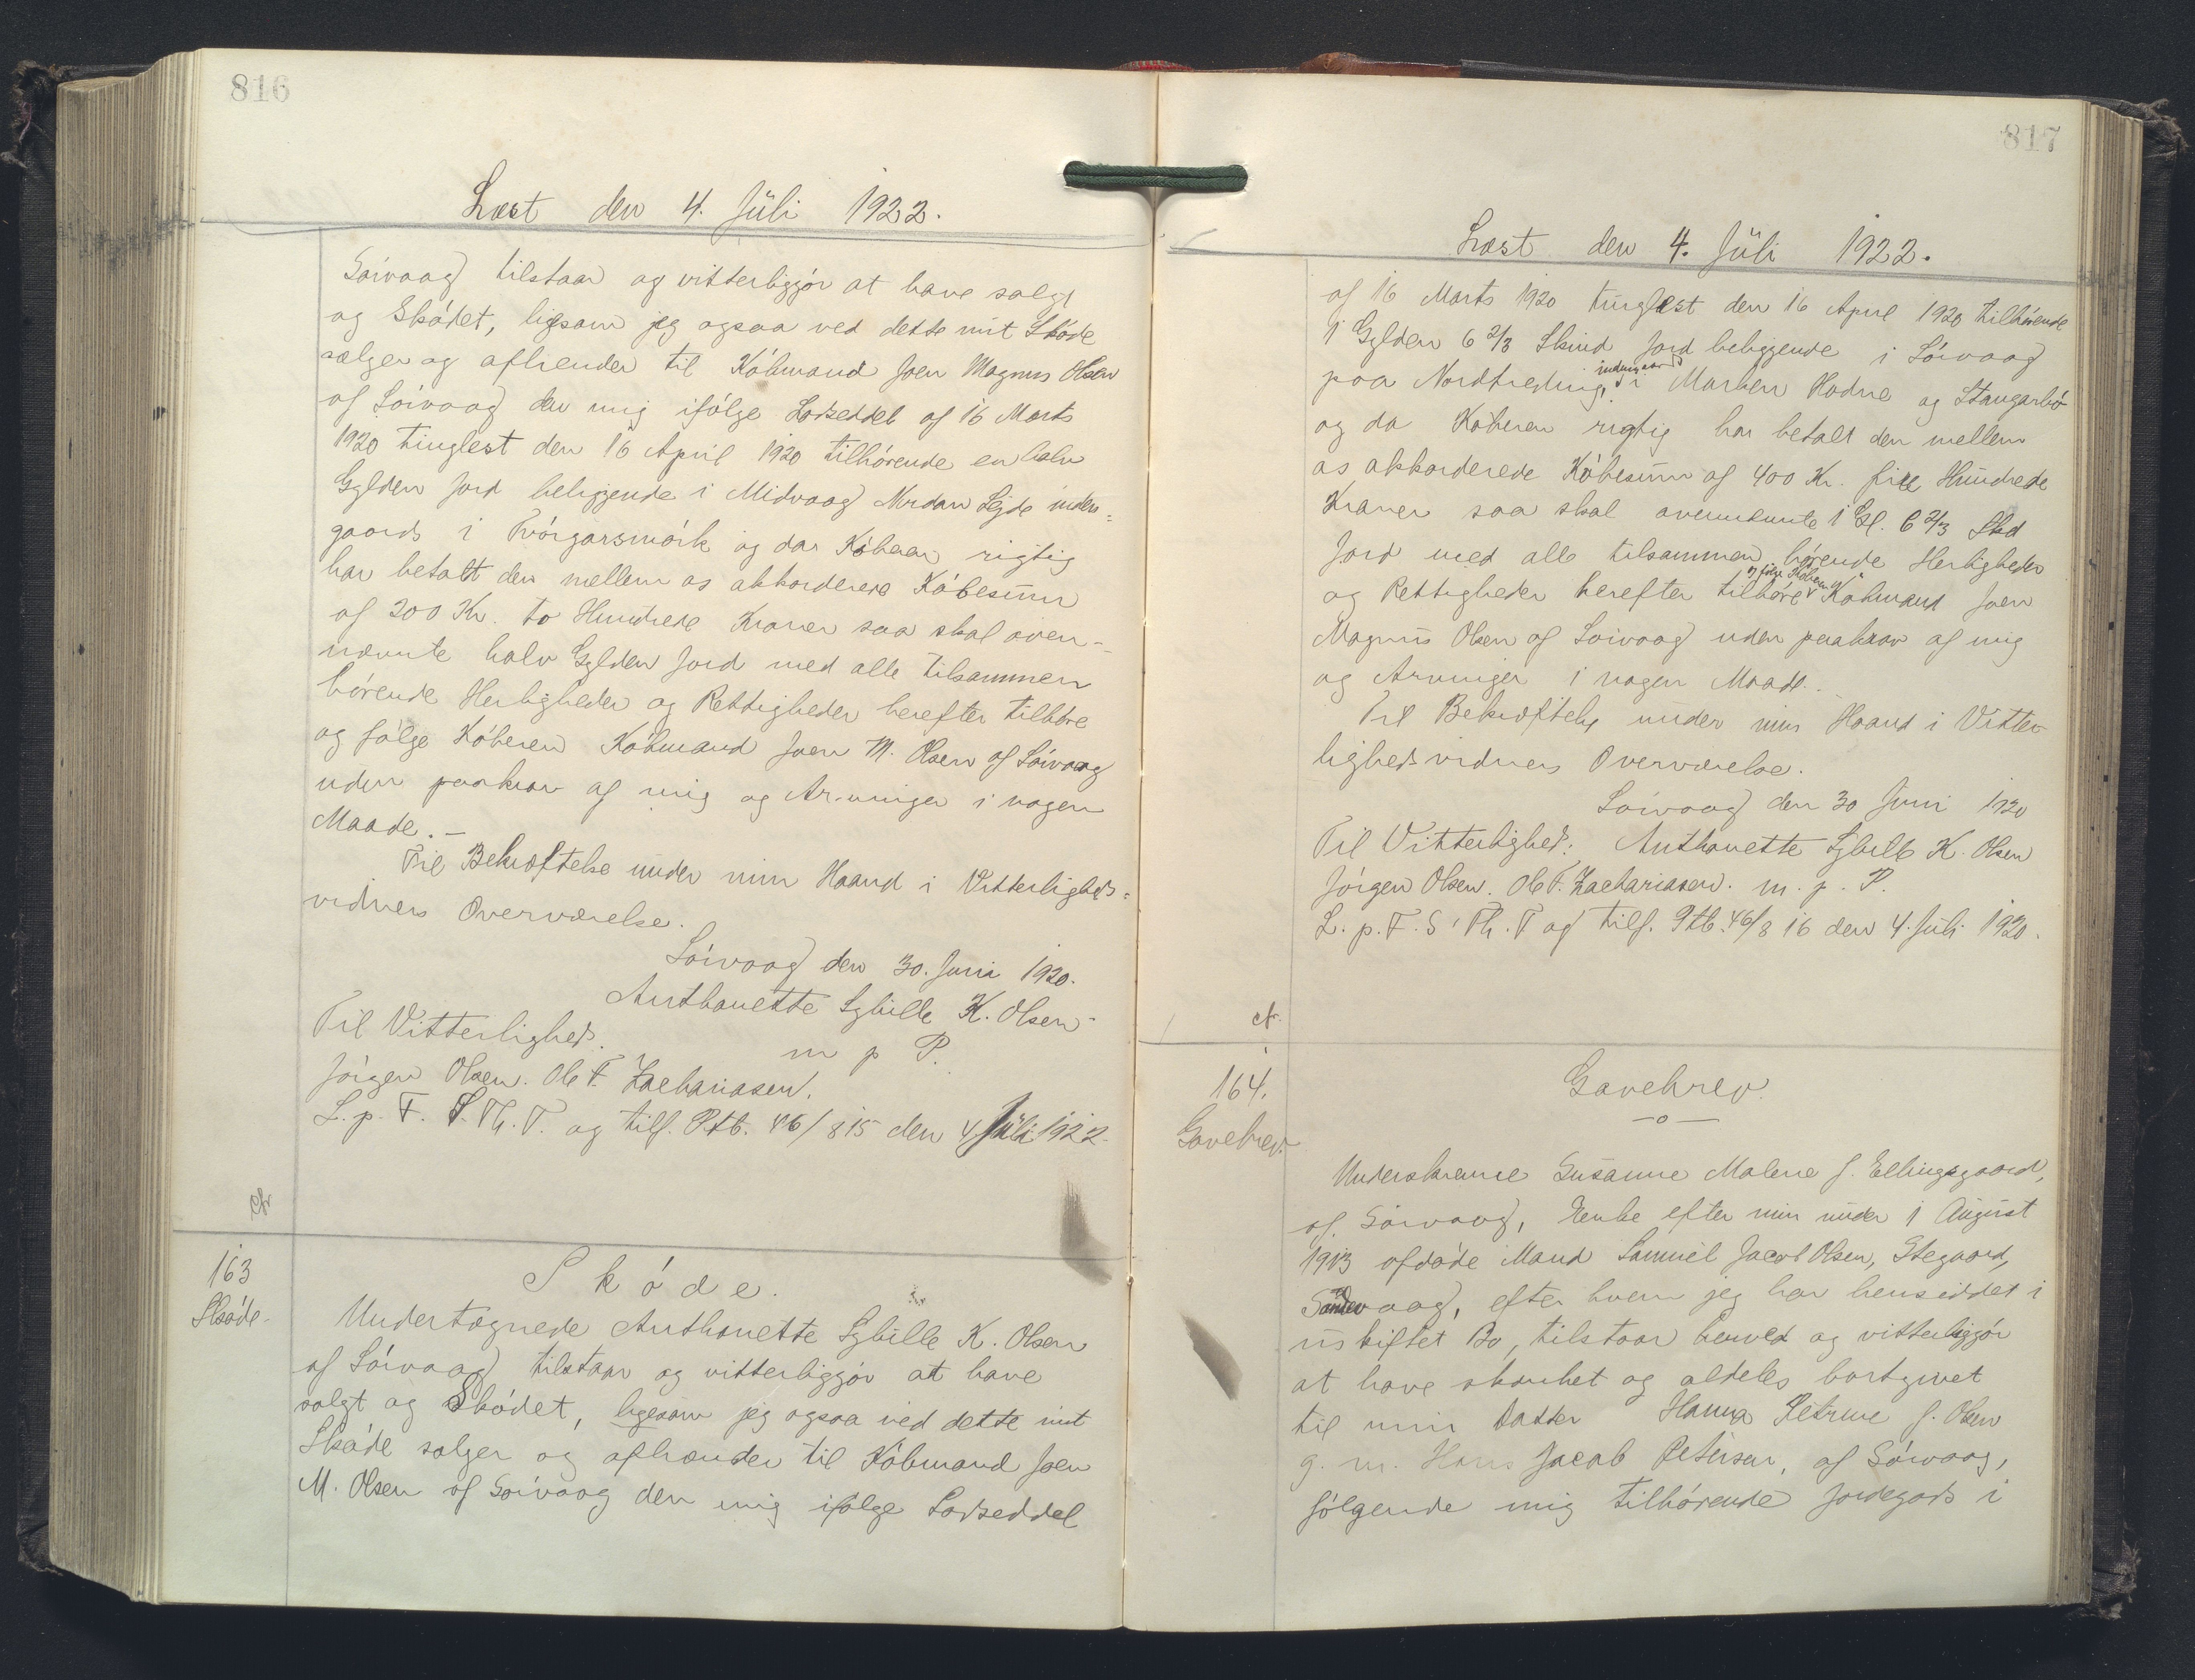 816
Læst den 4. Jüli 1922.
Sóivaag tilstaar og vitterliggjór at have solgt
og Skódet, ligesom jeg ogsaa ved dette mit Skóde
sælger og afhender til Kóbmand Joen Magnus Olsen
af Sóivaag den mig ifólge Lodseddel af 16 Marts
1920 tinglest den 16 April 1920 tilhórende en halv
Gylden Jord beliggende i Midvaag Nordan Lejde inden=
gaards i Tvórgarsmórk og da Kóberen rigtig
har betalt den mellem os akkorderede Kóbesüm
af 200 Kr. to Hundrede Kroner saa skal oven-
nævnte halv Gylden Jord med alle tilsammen
hórende Herligheder og Rettigheder herefter tilhóre
og fólge Kóberen Kóbmand Joen M. Olsen af Sóivaag
uden paakrav af mig og Arvinger i nogen
Maade. –
Til Bekræftelse ünder min Haand i Vitterligheds=
vidners Overværelse.
Sóivaag den 30. Juni 1920.
Anthonette Sybille K. Olsen
Til Vitterlighed. m p P.
Jórgen Olsen. Ole F. Zachariasen.
L. p. F. S. Th. T. og tilf. Ptb. 46/815 den 4 Jüli 1922.
cfr
163
Skóde.
Skóde.
Undertegnede Anthonette Sybille K. Olsen
af Sóivaag tilstaar og vitterliggjór at have
solgt og Skódet, ligesom jeg ogsaa ved dette mit
Skóde sælger og afhænder til Kóbmand Joen
M. Olsen af Sóivaag den mig ifólge Lodseddel
817
Læst den 4. Jüli 1922.
af 16 Marts 1920 tinglæst den 16 April 1920 tilhórende
1 Gylden 6 2/3 Skind Jord beliggende i Sóivaag
paa Nordtreding, indengaards i Marken Hadne og Stangarbó
og da Kóberen rigtig har betalt den mellem
os akkorderede Kóbesüm af 400 Kr. fire Hündrede
Kroner saa skal ovennævnte 1 Gl. 6 2/3 Skd
Jord med alle tilsammen hórende Herligheder
og Rettigheder herefter tilhóre og fólge Kóberen Kóbmand Joen
Magnüs Olsen af Sóivaag uden paakrav af mig
og Arvinger i nogen Maade.
Til Bekræftelse ünder min Haand i Vitter-
lighedsvidners Overværelse.
Sóivaag den 30 Juni 1920
Til Vitterlighed: Anthonette Sybille K. Olsen
Jórgen Olsen. Ole F. Zachariasen. m. p. P.
L. p. F. S. Th. T og tilf. Ptb. 46/816 den 4. Jüli 1920.
cfr.
164.
Gavebrev.
Gavebrev.
—o—
Underskrevne Susanne Malene f. Ellingsgaard,
af Sórvaag, Enke efter min ünder 1 Aügüst
1913 afdóde Mand Samüel Jacob Olsen, Stegaard,
aag, efter hvem jeg har hensiddet i
üskiftet Bo, tilstaar herved og vitterliggjór
at have skænket og aldeles bortgivet
til min Datter Hanna Petrine f. Olsen
g. m. Hans Jacob Petersen, af Sórvaag,
fólgende mig tilhórende Jordegods i